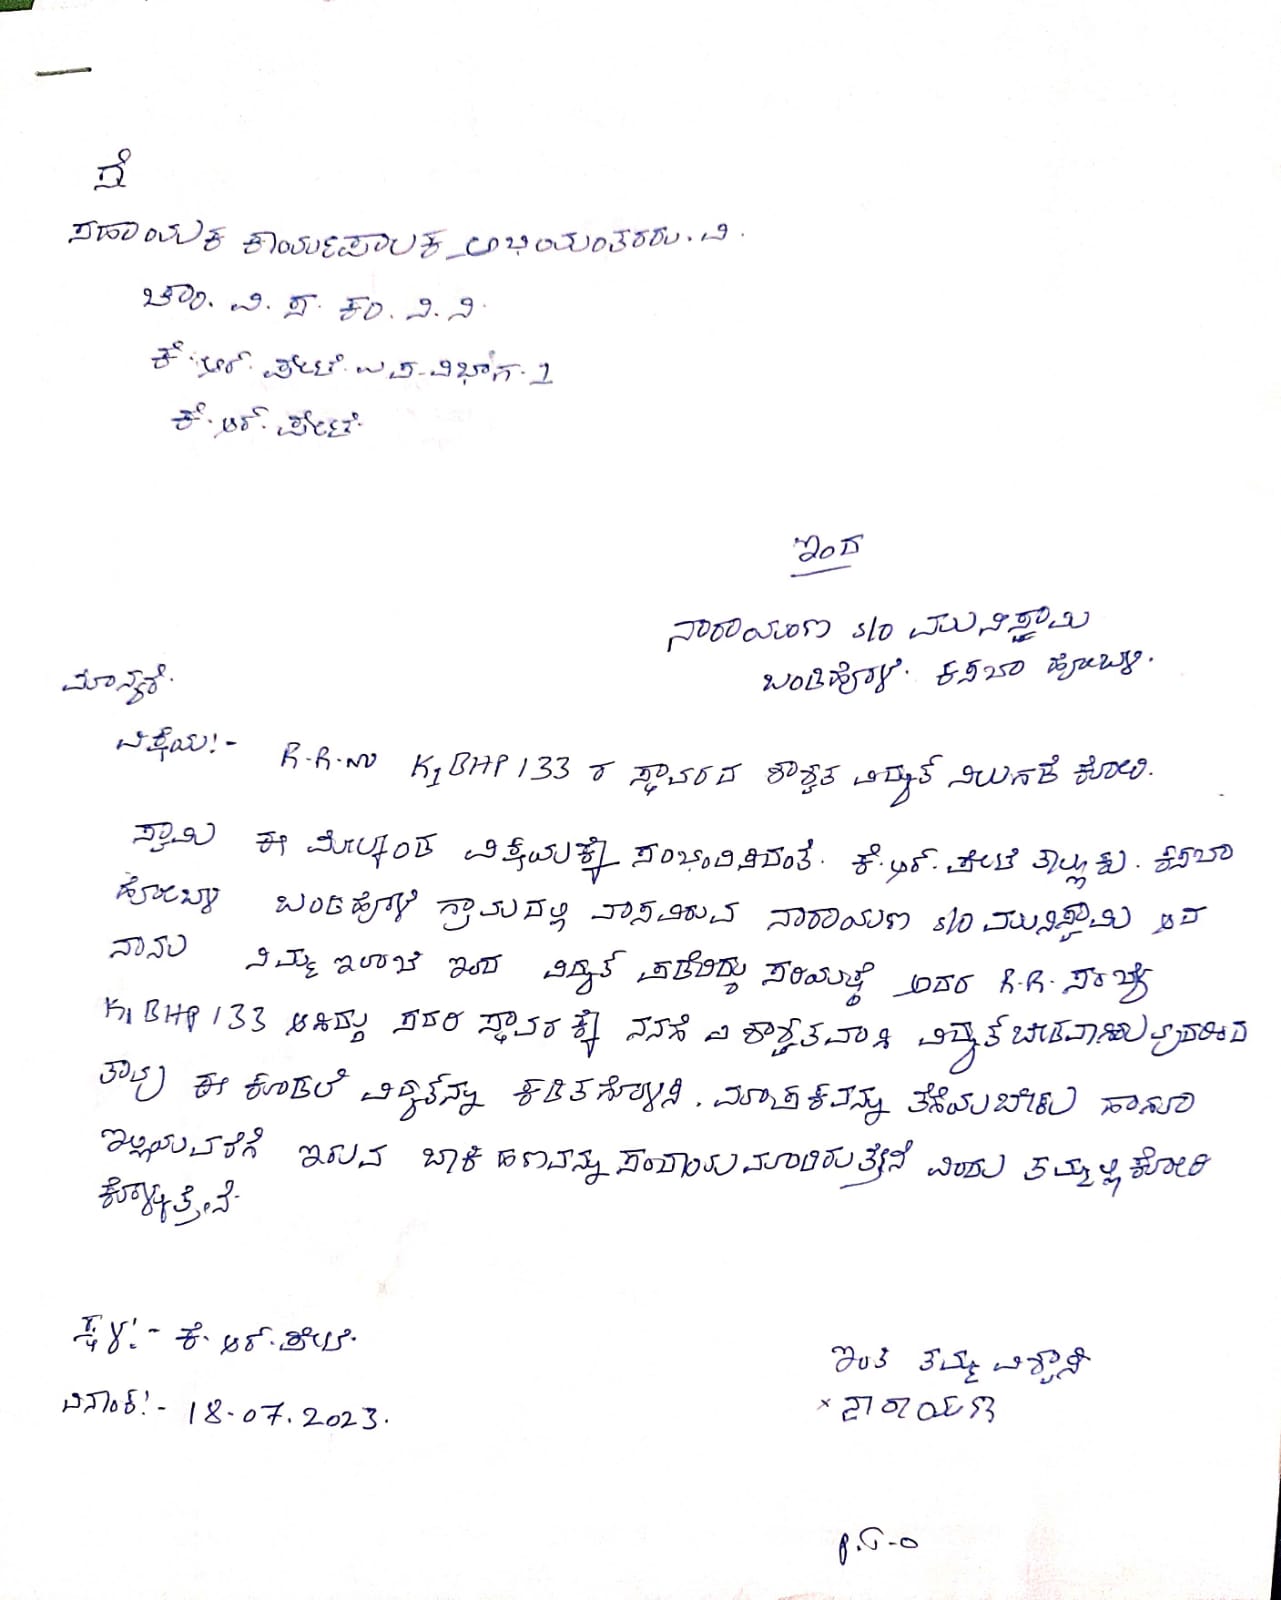 ಗೆ
ಸಹಾಯಕ ಕಾರ್ಯಪಾಲಕ ಅಭಿಯಂತರರು. ವಿ.
ಚಾ. ವಿ. ಸ. ಕಂ. ನಿ. ನಿ.
ಕೆ. ಆರ್. ಪೇಟೆ. ಉಪ-ವಿಭಾಗ. 1
ಕೆ. ಆರ್. ಪೇಟೆ.
ಇಂದ
ನಾರಾಯಣ s/o ಮುನಿಸ್ವಾಮಿ
ಬಂಡಿಹೊಳೆ. ಕಸಬಾ ಹೋಬಳಿ.
ಮಾನ್ಯರೆ.
ವಿಷಯ:- R.R.ನಂ K1BHP 133 ರ ಸ್ಥಾವರದ ಶಾಶ್ವತ ವಿದ್ಯುತ್ ನಿಲುಗಡೆ ಕೋರಿ.
ಸ್ವಾಮಿ ಈ ಮೇಲ್ಕಂಡ ವಿಷಯಕ್ಕೆ ಸಂಭಂದಿಸಿದಂತೆ. ಕೆ. ಆರ್. ಪೇಟೆ ತಾಲ್ಲೂಕು. ಕಸಬಾ
ಹೋಬಳಿ ಬಂಡಿಹೊಳೆ ಗ್ರಾಮದಲ್ಲಿ ವಾಸವಿರುವ ನಾರಾಯಣ s/o ಮುನಿಸ್ವಾಮಿ ಆದ
ನಾನು ನಿಮ್ಮ ಇಲಾಖೆ ಇಂದ ವಿದ್ಯುತ್ ಪಡೆದಿದ್ದು ಸರಿಯಷ್ಟೆ ಅದರ R.R. ಸಂಖ್ಯೆ
K1BHP 133 ಆಗಿದ್ದು ಸದರಿ ಸ್ಥಾವರಕ್ಕೆ ನನಗೆ ಶಾಶ್ವತವಾಗಿ ವಿದ್ಯುತ್ ಬೇಡವಾಗಿರುವುದರಿಂದ
ತಾವು ಈ ಕೂಡಲೆ ವಿದ್ಯುತ್‌ನ್ನು ಕಡಿತಗೊಳಿಸಿ. ಮಾಪಕವನ್ನು ತೆಗೆಯಬೇಕು ಹಾಗೂ
ಇಲ್ಲಿಯವರೆಗೆ ಇರುವ ಬಾಕಿ ಹಣವನ್ನು ಸಂದಾಯ ಮಾಡಿರುತ್ತೇನೆ ಎಂದು ತಮ್ಮಲ್ಲಿ ಕೋರಿ
ಕೊಳ್ಳುತ್ತೇನೆ.
ಸ್ಥಳ:- ಕೆ. ಆರ್. ಪೇಟೆ.
ದಿನಾಂಕ:- 18.07.2023.
ಇಂತಿ ತಮ್ಮ ವಿಶ್ವಾಸಿ
× ನಾರಾಯಣ
P.T.O